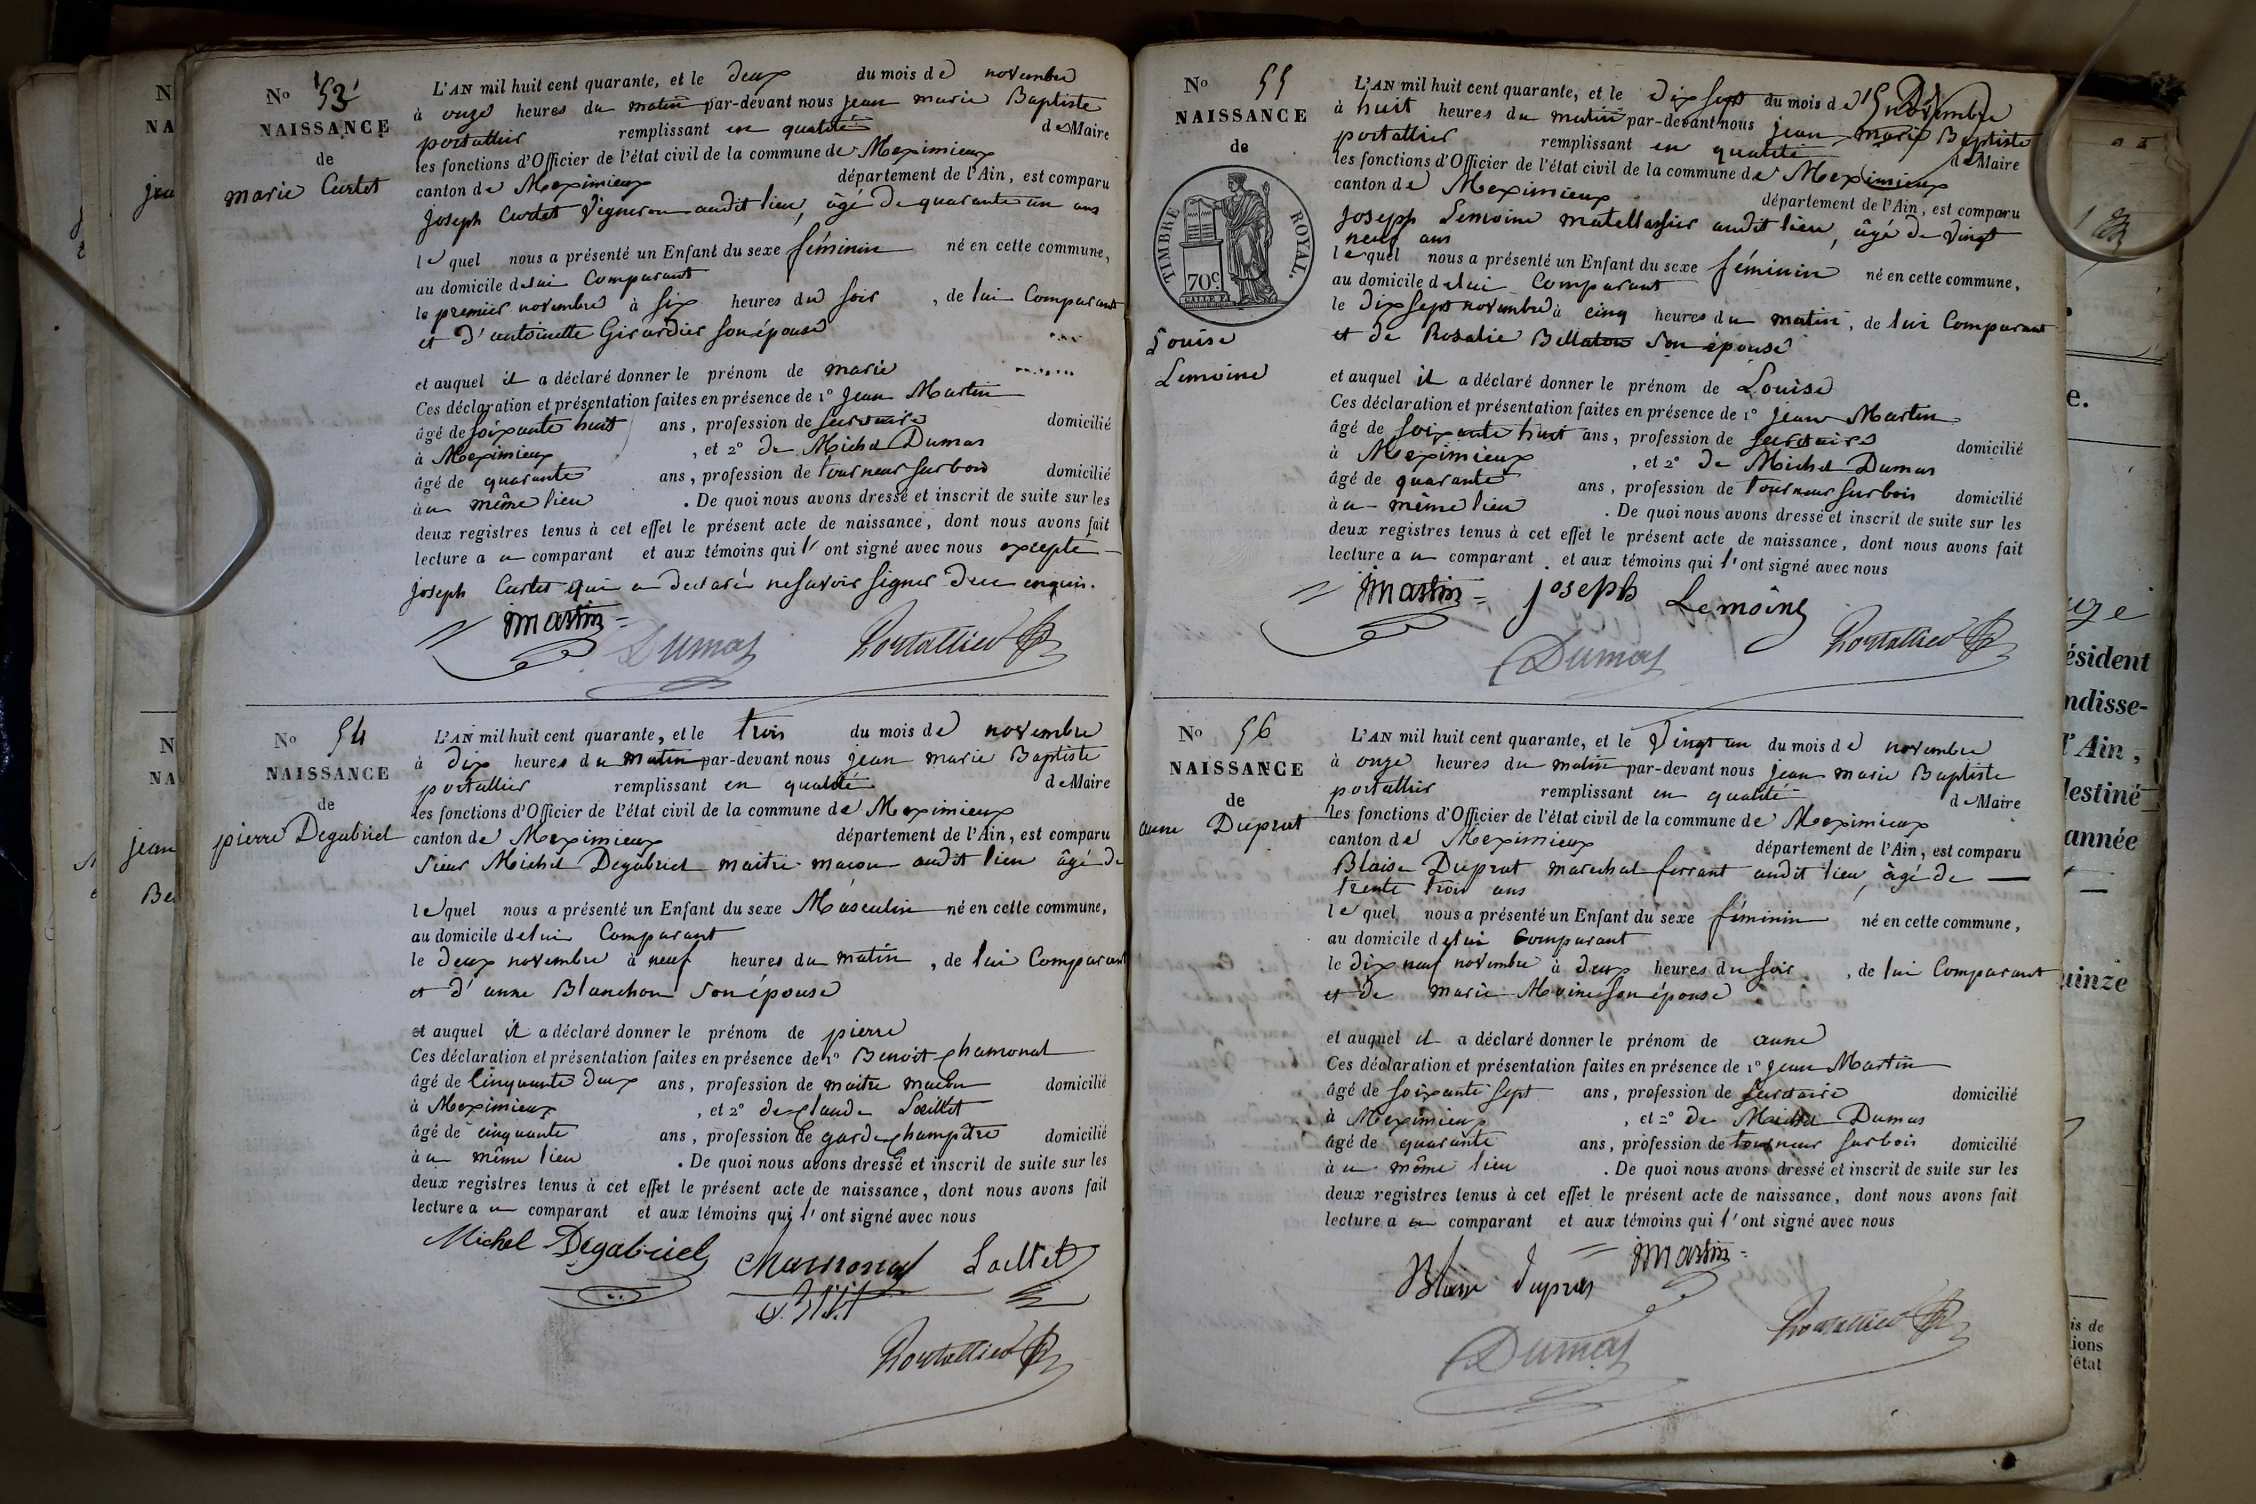 No 53
NAISSANCE
de
marie Curtet
L'AN mil huit cent quarante, et le deux du mois de novembre
à onze heures du matin par-devant nous jean marie Baptiste
portallier remplissant en qualité de Maire
les fonctions d'Officier de l'état civil de la commune de Meximieux
canton de Meximieux département de l'Ain, est comparu
joseph Curtet Vigneron audit lieu, âgé de quarante un ans
lequel nous a présenté un Enfant du sexe féminin né en cette commune,
au domicile de lui Comparant
le premier novembre à six heures du soir, de lui Comparant
et d'antoinette Girardier son épouse
et auquel il a déclaré donner le prénom de marie
Ces déclaration et présentation faites en présence de 1° jean Martin
âgé de soixante huit ans, profession de secretaire domicilié
à Meximieux, et 2° de Michel Dumas
âgé de quarante ans, profession de tourneur sur bois domicilié
à au même lieu. De quoi nous avons dressé et inscrit de suite sur les
deux registres tenus à cet effet le présent acte de naissance, dont nous avons fait
lecture a u comparant et aux témoins qui l'ont signé avec nous excepté
joseph Curtet qui a declaré ne savoir signer de ce enquis.
martin
Dumas Portallier
No 54
NAISSANCE
de
pierre Degabriel
L'AN mil huit cent quarante, et le trois du mois de novembre
à dix heures du matin par-devant nous jean marie Baptiste
portallier remplissant en qualité de Maire
les fonctions d'Officier de l'état civil de la commune de Meximieux
canton de Meximieux département de l'Ain, est comparu
sieur Michel Degabriel maitre macon audit lieu âgé de
lequel nous a présenté un Enfant du sexe Masculin né en cette commune,
au domicile de lui Comparant
le deux novembre à neuf heures du matin, de lui Comparant
et d'anne Blanchon son épouse
et auquel il a déclaré donner le prénom de pierre
Ces déclaration et présentation faites en présence de 1° Benoit Chamonal
âgé de Cinquante deux ans, profession de maitre macon domicilié
à Meximieux, et 2° de Claude Loeillet
âgé de cinquante ans, profession de garde champêtre domicilié
à au même lieu. De quoi nous avons dressé et inscrit de suite sur les
deux registres tenus à cet effet le présent acte de naissance, dont nous avons fait
lecture a u comparant et aux témoins qui l'ont signé avec nous
Michel Degabriel Chamonal Loeillet
Portallier
No 55
NAISSANCE
de
TIMBRE ROYAL.
70c
Louise
Lemoine
L'AN mil huit cent quarante, et le dix sept du mois de novembre
à huit heures du matin par-devant nous jean marie Baptiste
portallier remplissant en qualité de Maire
les fonctions d'Officier de l'état civil de la commune de Meximieux
canton de Meximieux département de l'Ain, est comparu
joseph Lemoine matellassier audit lieu, âgé de vingt
neuf ans
lequel nous a présenté un Enfant du sexe féminin né en cette commune,
au domicile de lui Comparant
le dix sept novembre à cinq heures du matin, de lui Comparant
et de Rosalie Bellaton son épouse
et auquel il a déclaré donner le prénom de Louise
Ces déclaration et présentation faites en présence de 1° jean Martin
âgé de soixante huit ans, profession de secretaire domicilié
à Meximieux, et 2° de Michel Dumas
âgé de quarante ans, profession de tourneur sur bois domicilié
à au même lieu. De quoi nous avons dressé et inscrit de suite sur les
deux registres tenus à cet effet le présent acte de naissance, dont nous avons fait
lecture a u comparant et aux témoins qui l'ont signé avec nous
martin joseph Lemoine
Dumas Portallier
No 56
NAISSANCE
de
anne Duprat
L'AN mil huit cent quarante, et le Vingt un du mois de novembre
à onze heures du matin par-devant nous jean marie Baptiste
portallier remplissant en qualité de Maire
les fonctions d'Officier de l'état civil de la commune de Meximieux
canton de Meximieux département de l'Ain, est comparu
Blaise Duprat marechal ferrant audit lieu, âgé de
trente trois ans
lequel nous a présenté un Enfant du sexe féminin né en cette commune,
au domicile de lui Comparant
le dix neuf novembre à deux heures du soir, de lui Comparant
et de marie Moine son épouse
et auquel il a déclaré donner le prénom de anne
Ces déclaration et présentation faites en présence de 1° jean Martin
âgé de soixante sept ans, profession de secretaire domicilié
à Meximieux, et 2° de Michel Dumas
âgé de quarante ans, profession de tourneur sur bois domicilié
à au même lieu. De quoi nous avons dressé et inscrit de suite sur les
deux registres tenus à cet effet le présent acte de naissance, dont nous avons fait
lecture a u comparant et aux témoins qui l'ont signé avec nous
martin
Blaise duprat
Dumas Portallier